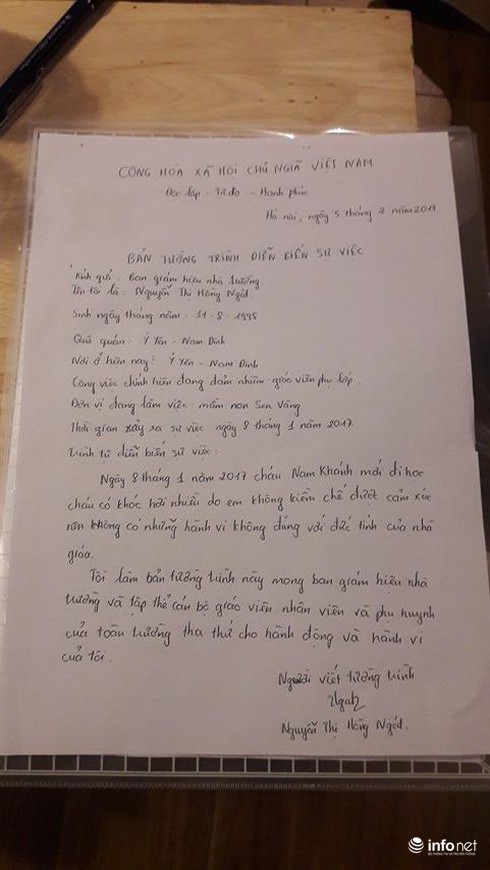 CỘNG HÒA XÃ HỘI CHỦ NGHĨA VIỆT NAM
Độc lập - Tự do - Hạnh phúc
Hà nội, ngày 5 tháng 2 năm 2017
BẢN TƯỜNG TRÌNH DIỄN BIẾN SỰ VIỆC
Kính gửi: Ban giám hiệu nhà trường
Tên tôi là: Nguyễn Thị Hồng Ngát
Sinh ngày tháng năm: 31-8-1995
Quê quán: Ý Yên - Nam Định
Nơi ở hiện nay: Ý Yên - Nam Định
Công việc chính hiện đang đảm nhiệm: giáo viên phụ lớp.
Đơn vị đang làm việc: mầm non Sen Vàng
Thời gian xảy ra sự việc ngày 8 tháng 1 năm 2017
Trình tự diễn biến sự việc:
Ngày 8 tháng 1 năm 2017 cháu Nam Khánh mới đi học
cháu có khóc hơi nhiều do em không kiềm chế được cảm xúc
nên không có những hành vi không đúng với đức tính của nhà
giáo.
Tôi làm bản tường trình này mong ban giám hiệu nhà
trường và tập thể cán bộ giáo viên nhân viên và phụ huynh
của toàn trường tha thứ cho hành động và hành vi
của tôi.
Người viết tường trình
Ngát
Nguyễn Thị Hồng Ngát.
infonet